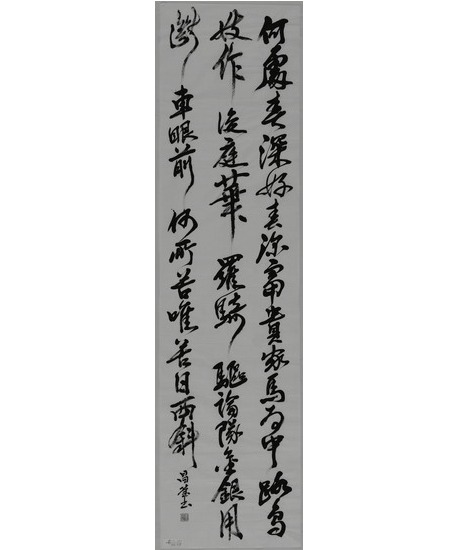 何處春深好春深富貴家馬為中路鳥
妓作後庭華羅綺驅論隊金銀用
斷車眼前何所苦唯苦日西斜